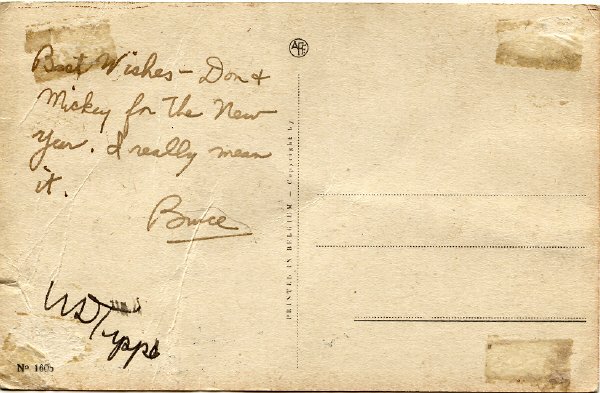 Best Wishes - Don &
Mickey for the New
Year. I really mean
it.
Bruce
PRINTED IN BELGIUM - Copyright by
Nº 160